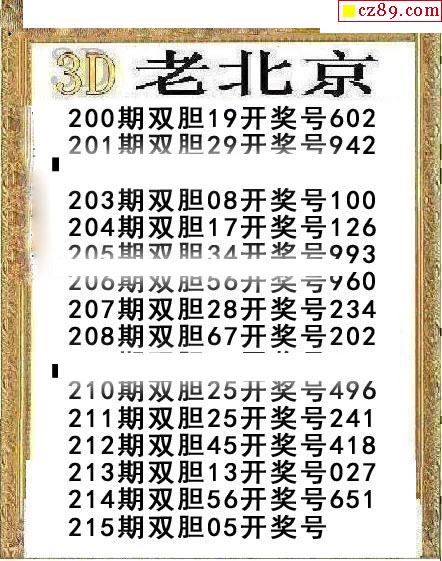 cz89.com
3D 老北京
200期双胆19开奖号602
201期双胆29开奖号942
203期双胆08开奖号100
204期双胆17开奖号126
205期双胆34开奖号993
206期双胆56开奖号960
207期双胆28开奖号234
208期双胆67开奖号202
期双胆 开奖号
210期双胆25开奖号496
211期双胆25开奖号241
212期双胆45开奖号418
213期双胆13开奖号027
214期双胆56开奖号651
215期双胆05开奖号